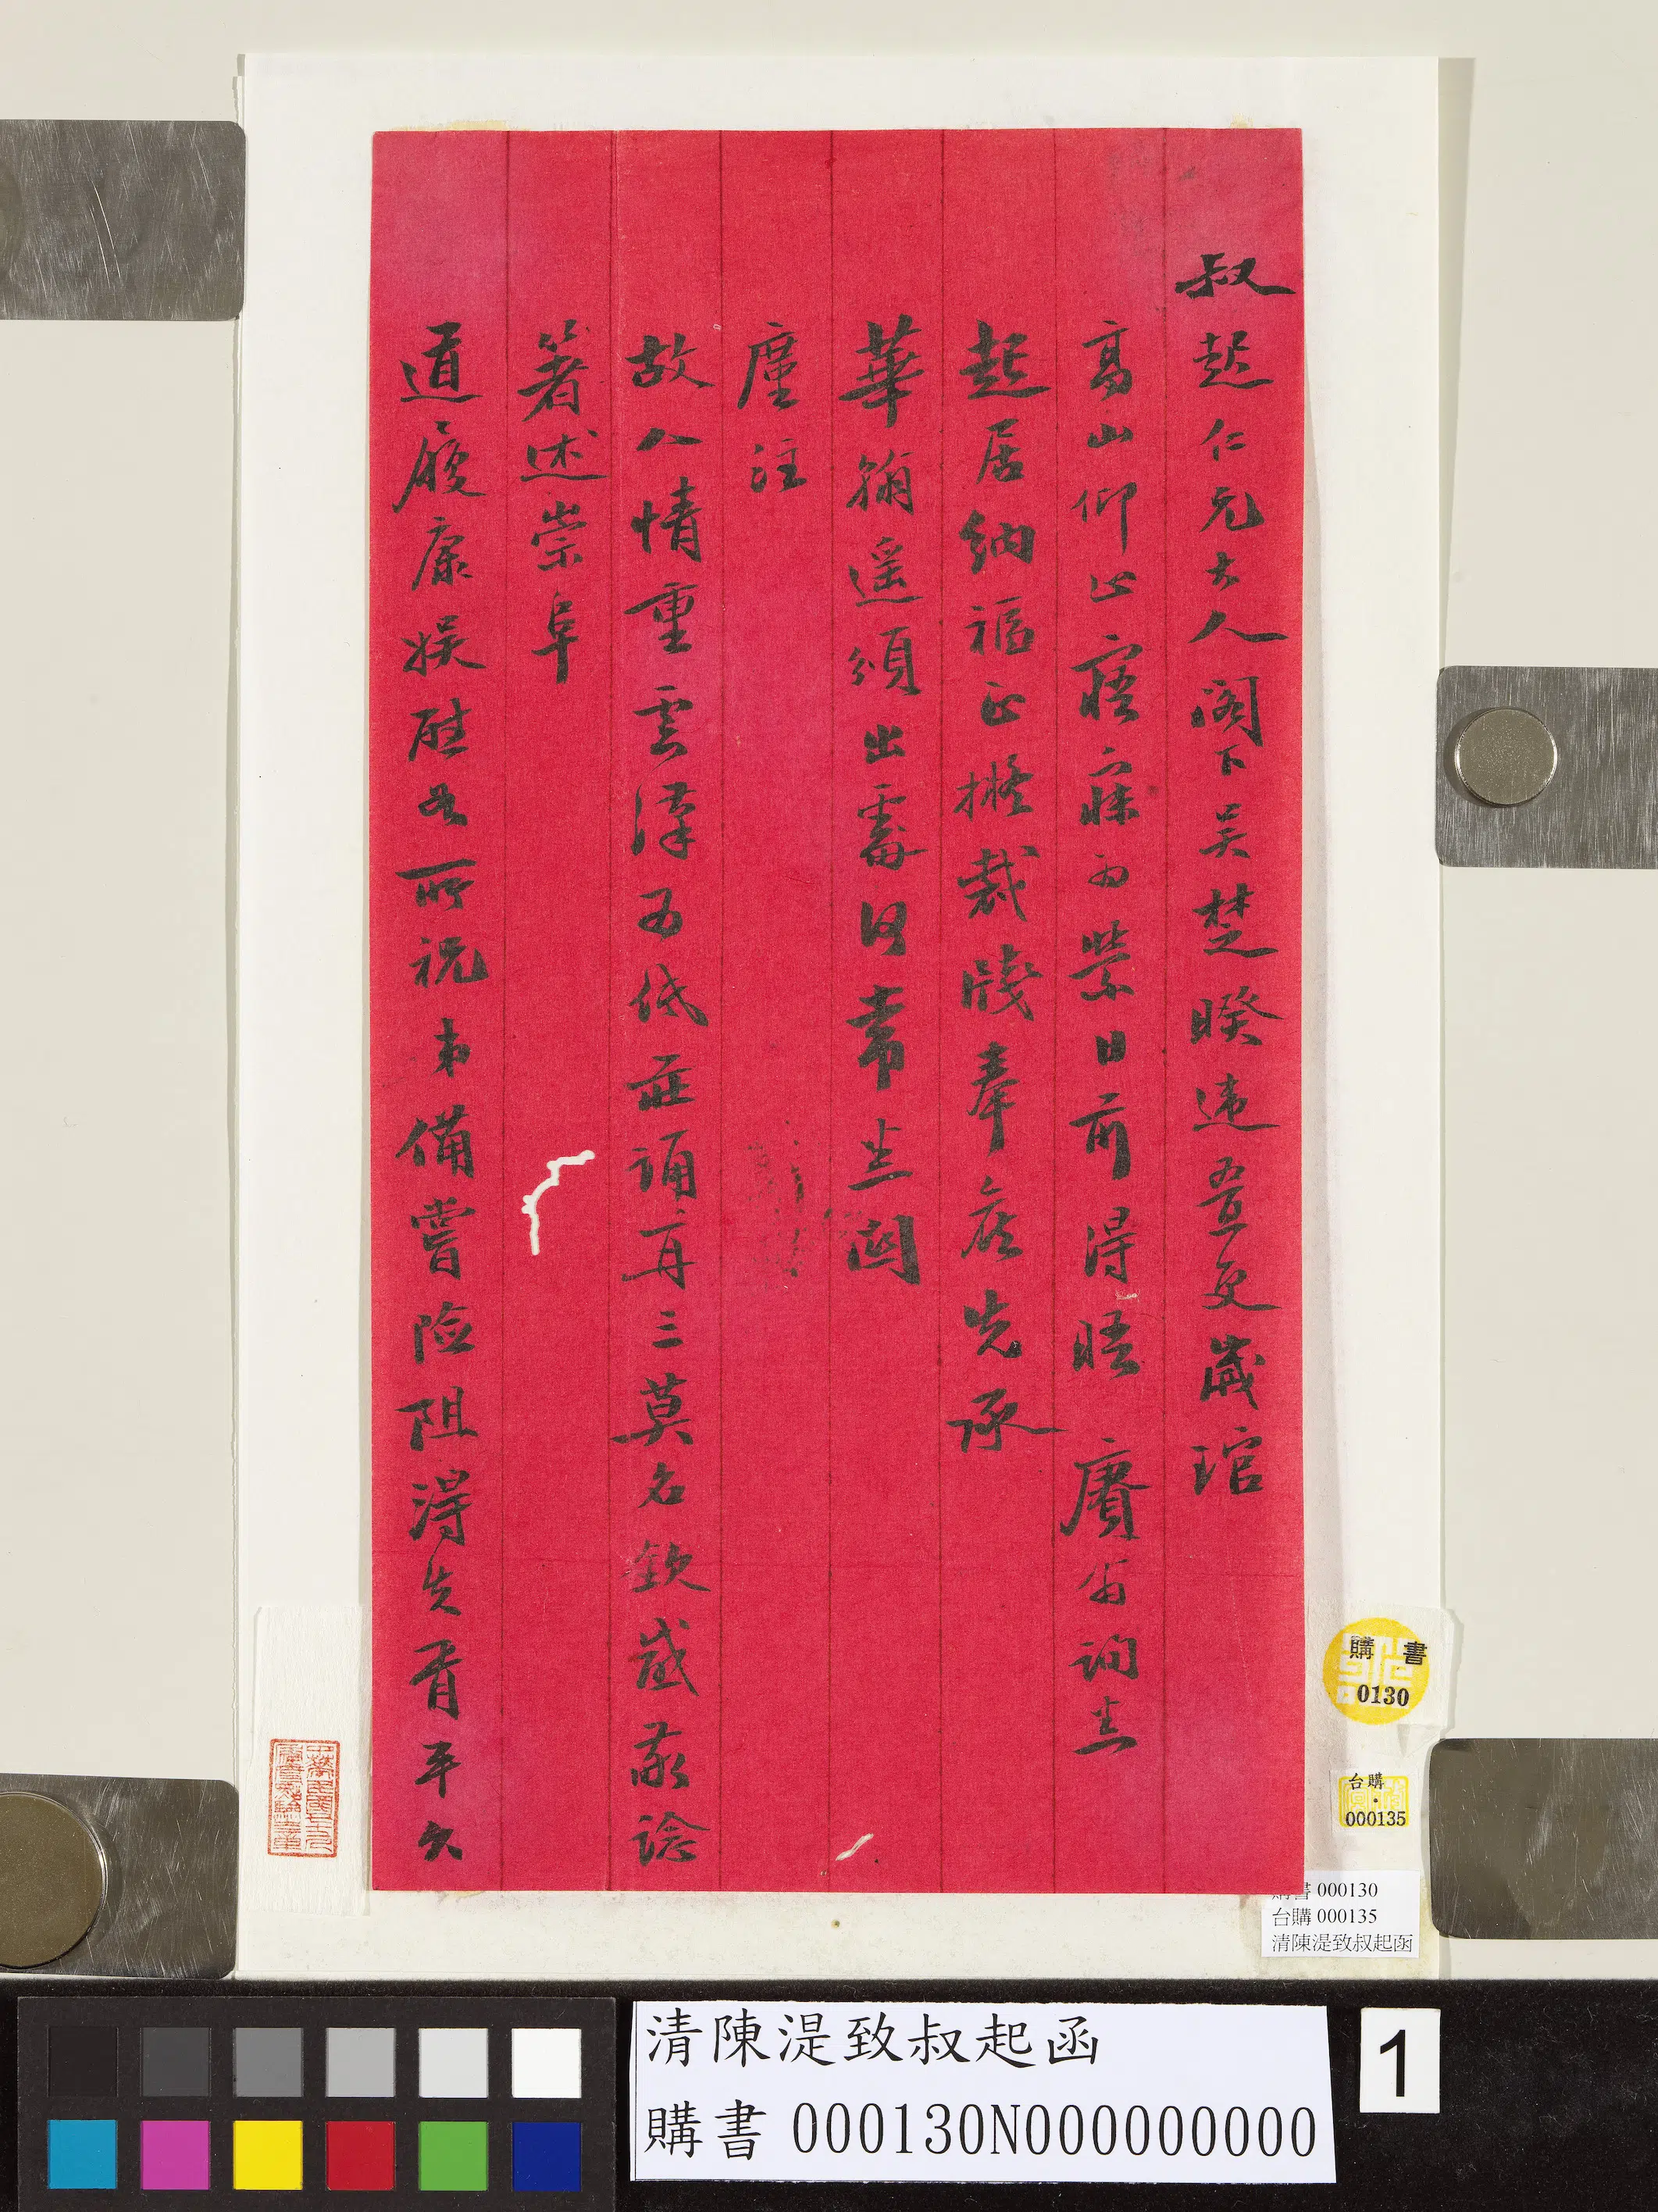 叔起仁兄大人閣下吴楚暌違亟更歲琯
高山仰止寤寐為縈日前得晤賡甫詢悉
起居納福正擬裁牋奉候先承
華翰遥頒出處得常悉關
廑注
故人情重雲漢為低莊誦再三莫名欽感敬諗
著述崇阜
道履康娱慰如所祝弟備嘗險阻得失胥平久
購書
0130
台購
000135
購書 000130
台購 000135
清陳湜致叔起函
清陳湜致叔起函
購書 000130N000000000
1